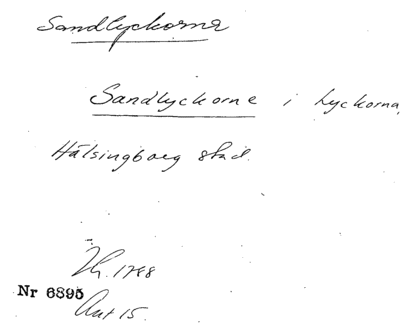 Sandlyckorna
Sandlyckorne i Lyckorna,
Hälsingborg stad.
Th. 1788
Nr 6895
Akt 15.